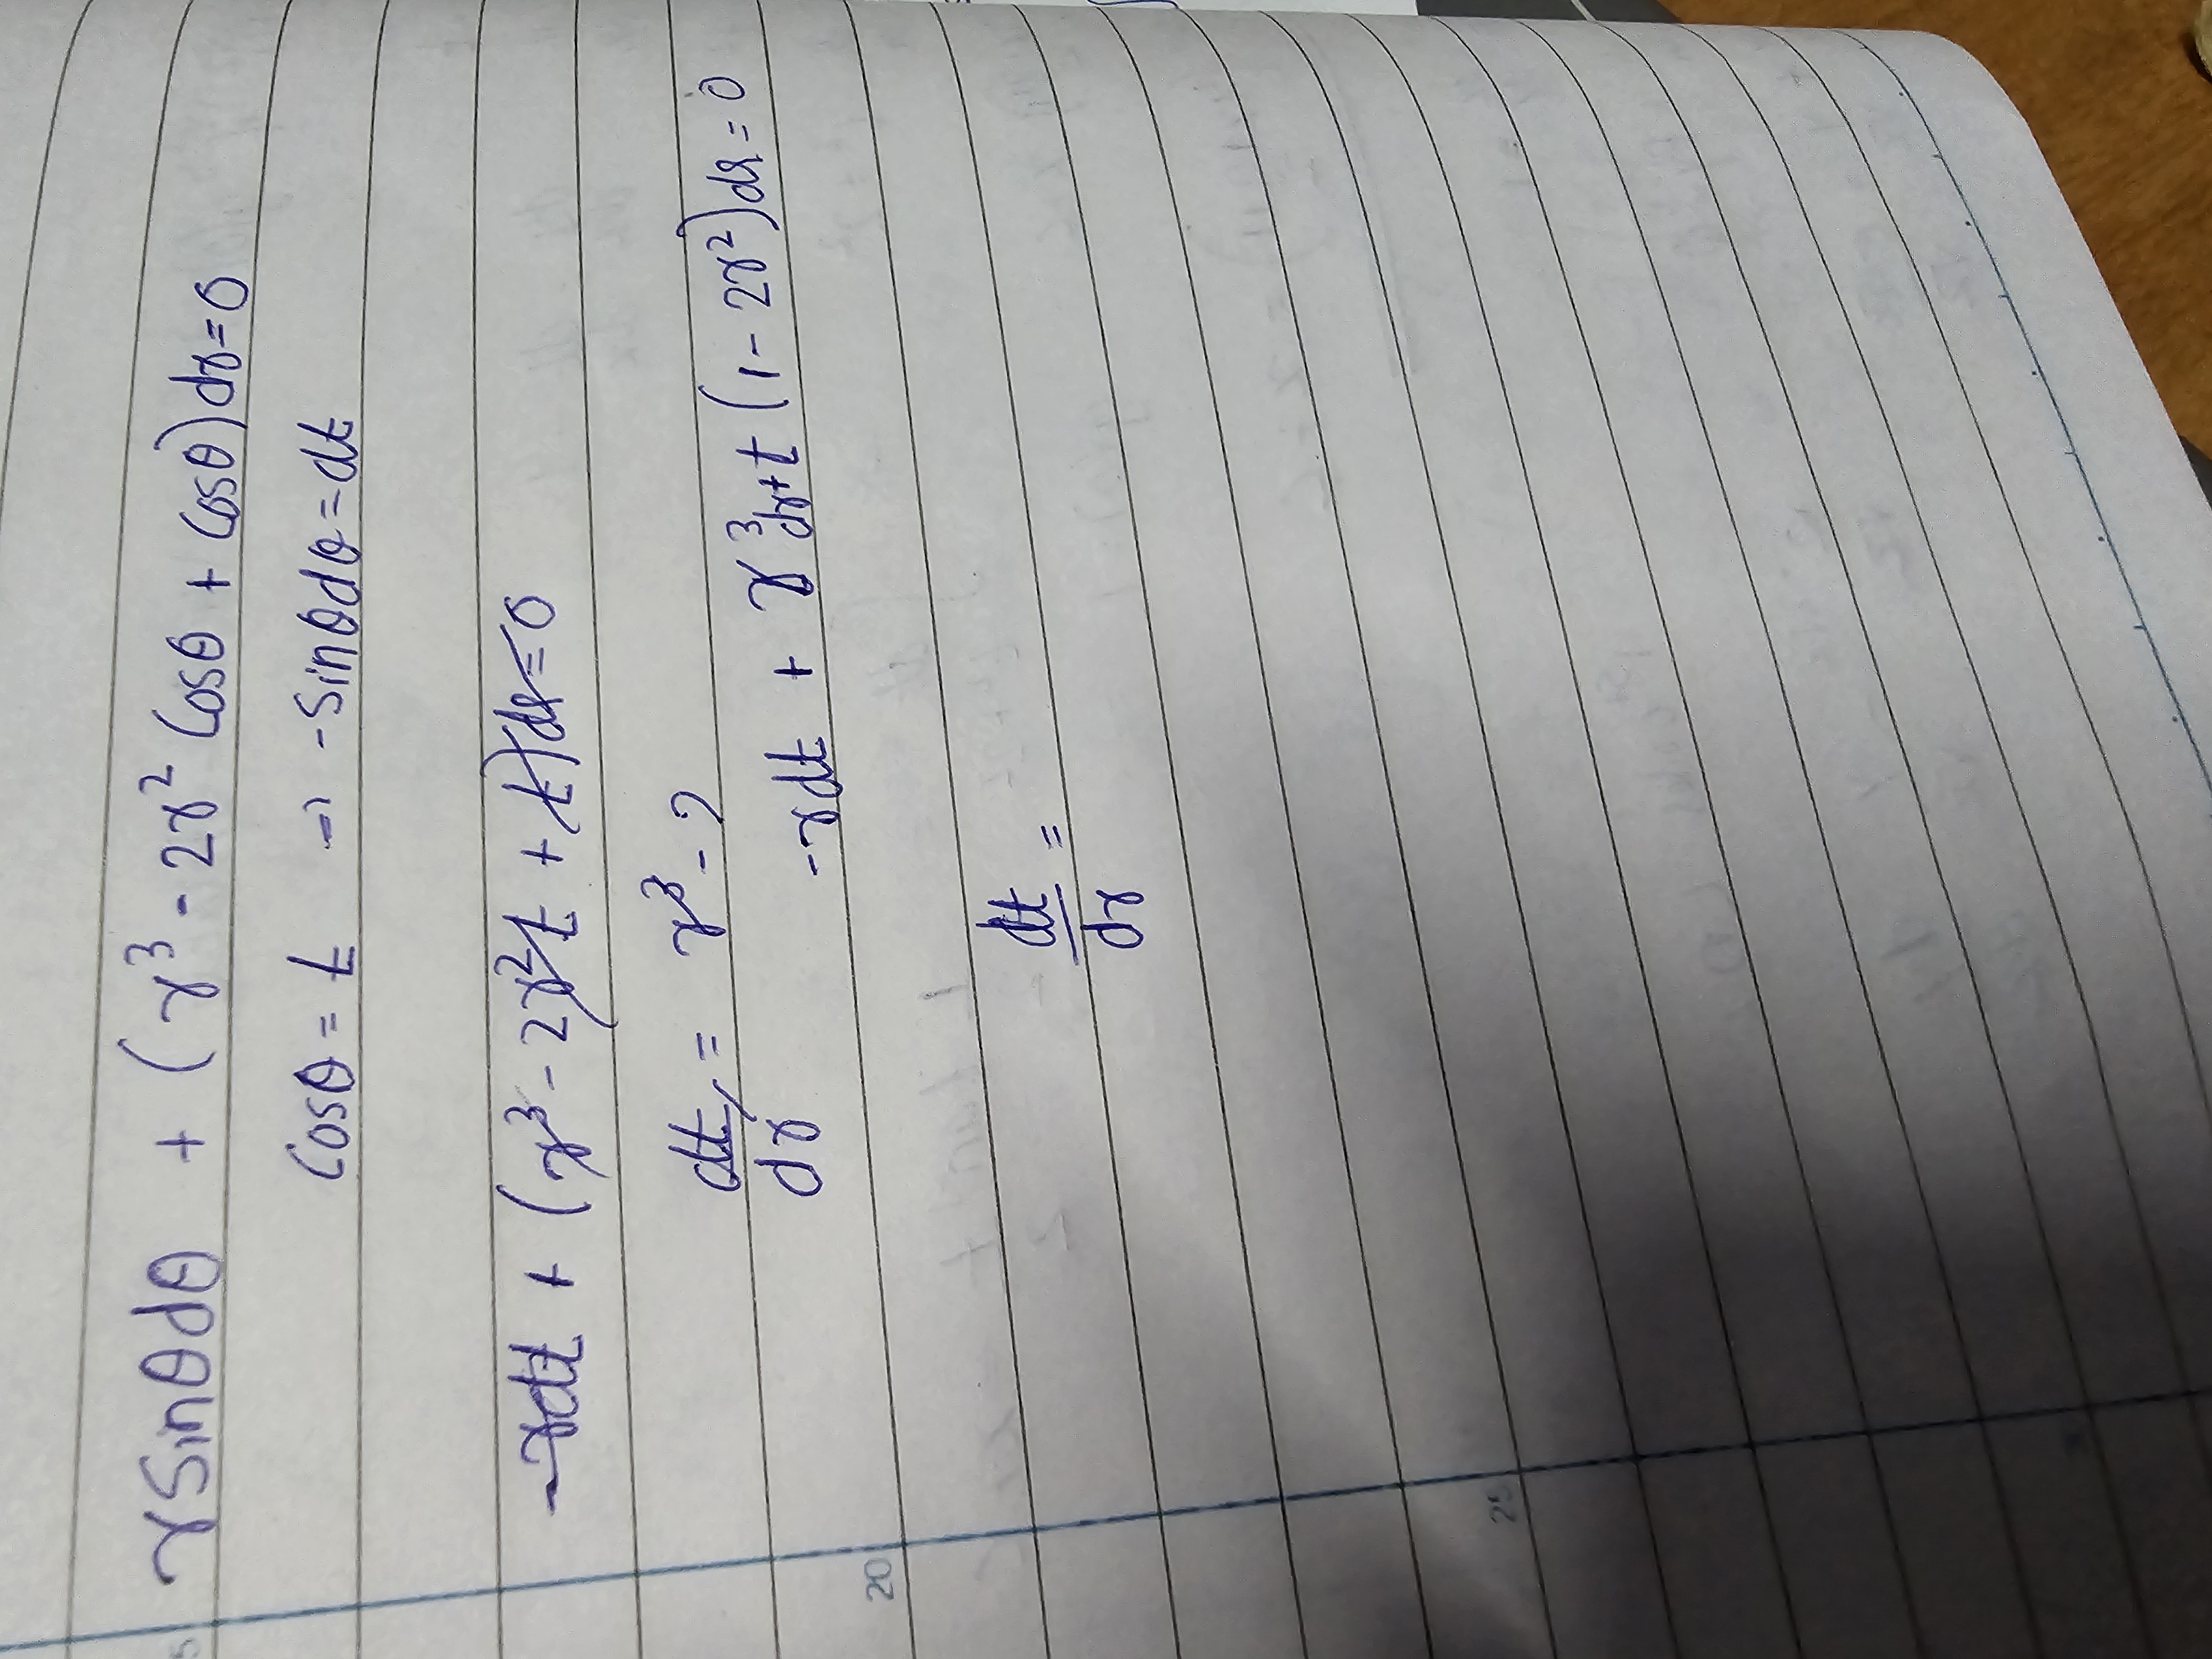 r sinθdθ + (r³ - 2r² cosθ + cosθ)dr=0
cosθ = t → -sinθdθ=dt
-rdt + (r³ - 2r²t + t)dr=0
dt/dr = r³ - 2
-rdt + r³dr+t (1- 2r²)dr=0
20
dt/dr =
25